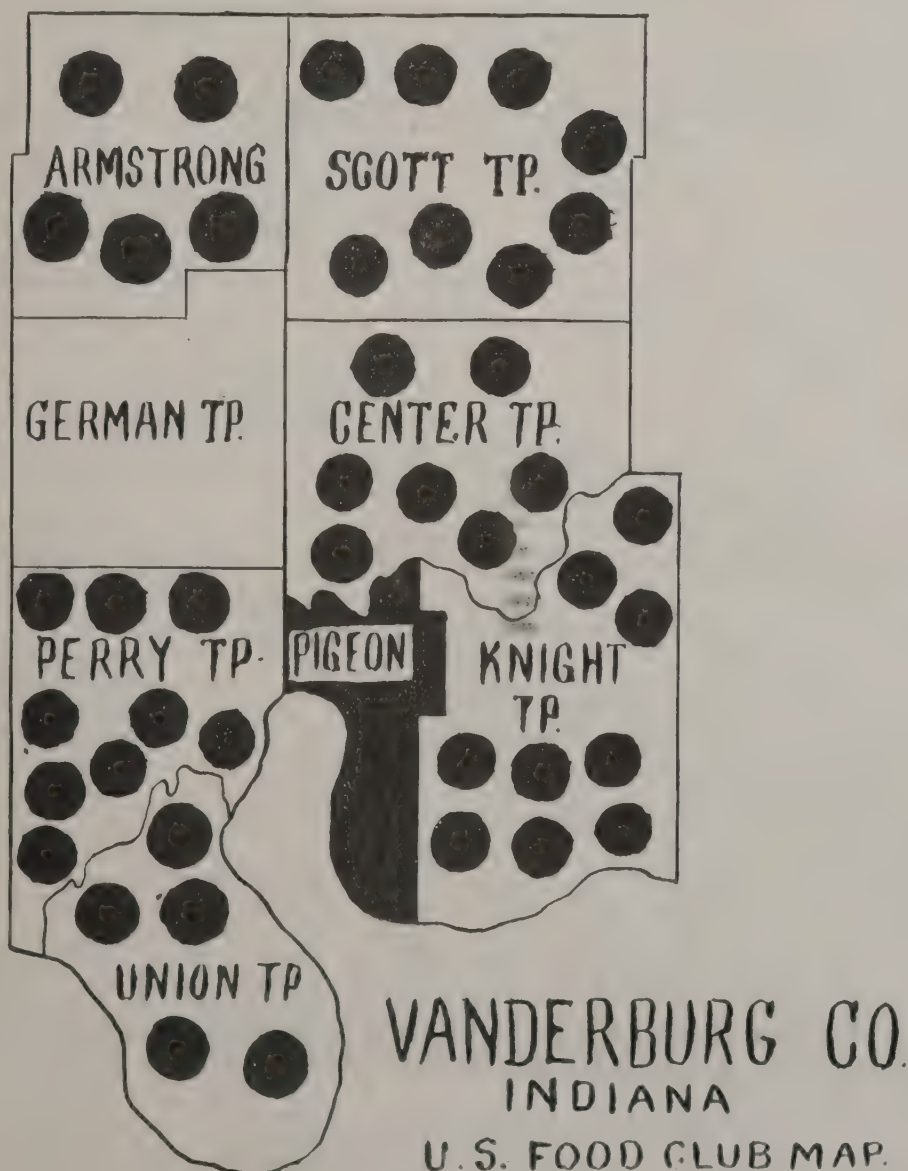 ARMSTRONG
SCOTT TP.
GERMAN TP.
CENTER TP.
PERRY TP.
PIGEON
KNIGHT
TP.
UNION TP
VANDERBURG CO.
INDIANA
U.S. FOOD CLUB MAP.